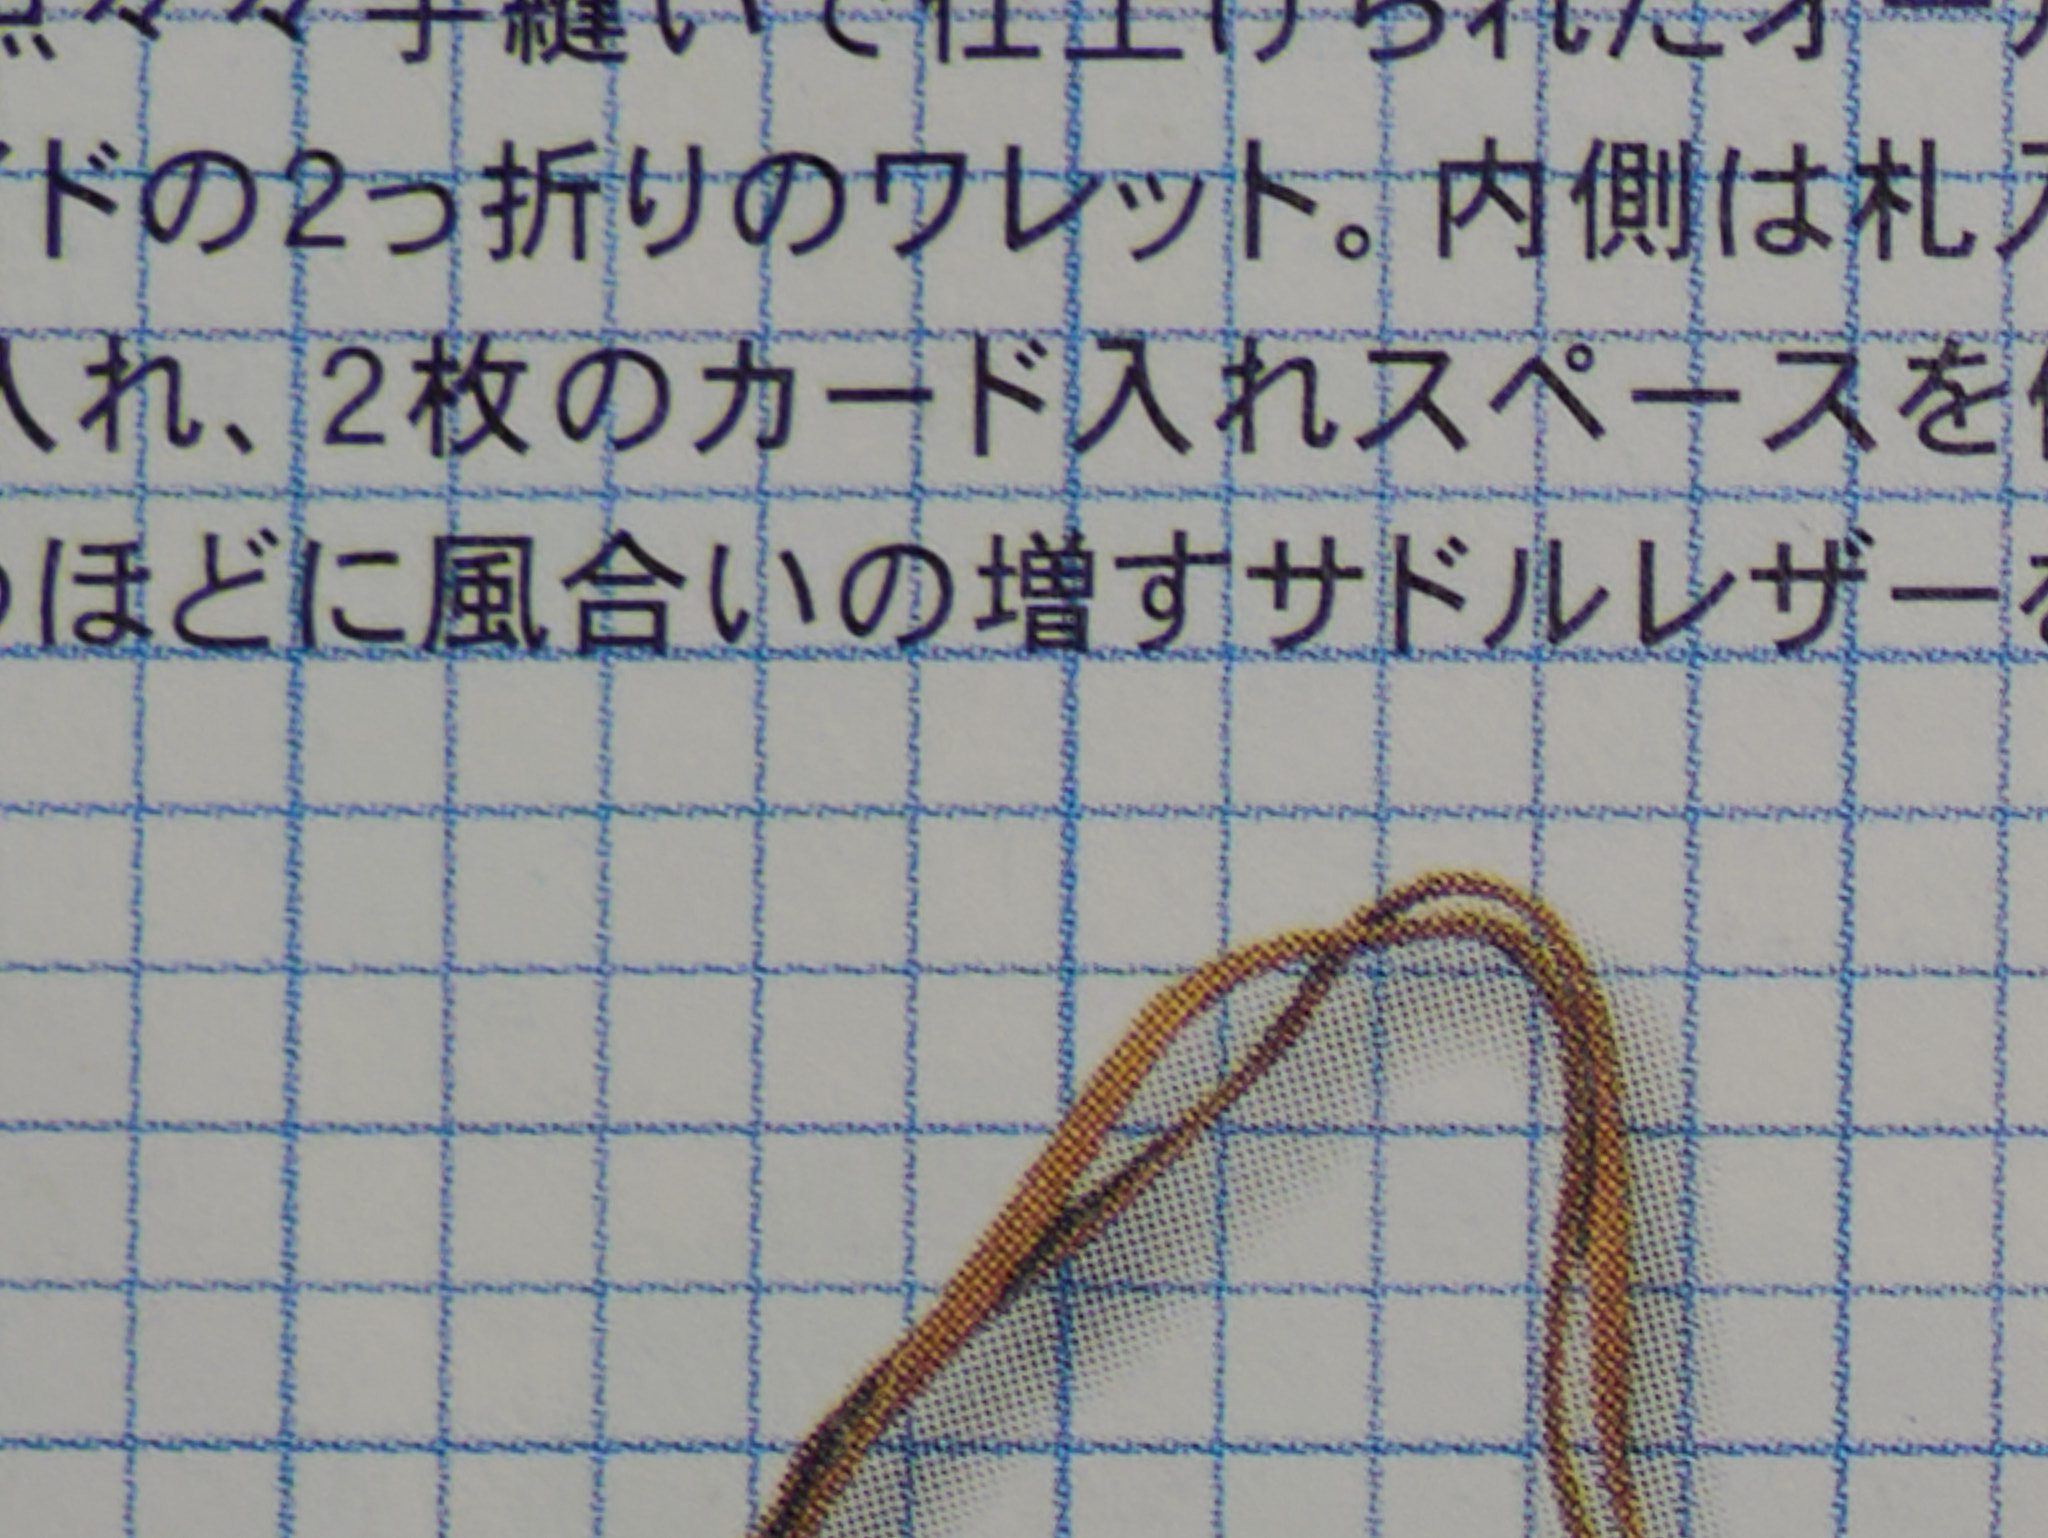 点々々手縫いで仕上げられたオー
ドの2つ折りのワレット。内側は札入
入れ、2枚のカード入れスペースを
ほどに風合いの増すサドルレザーを